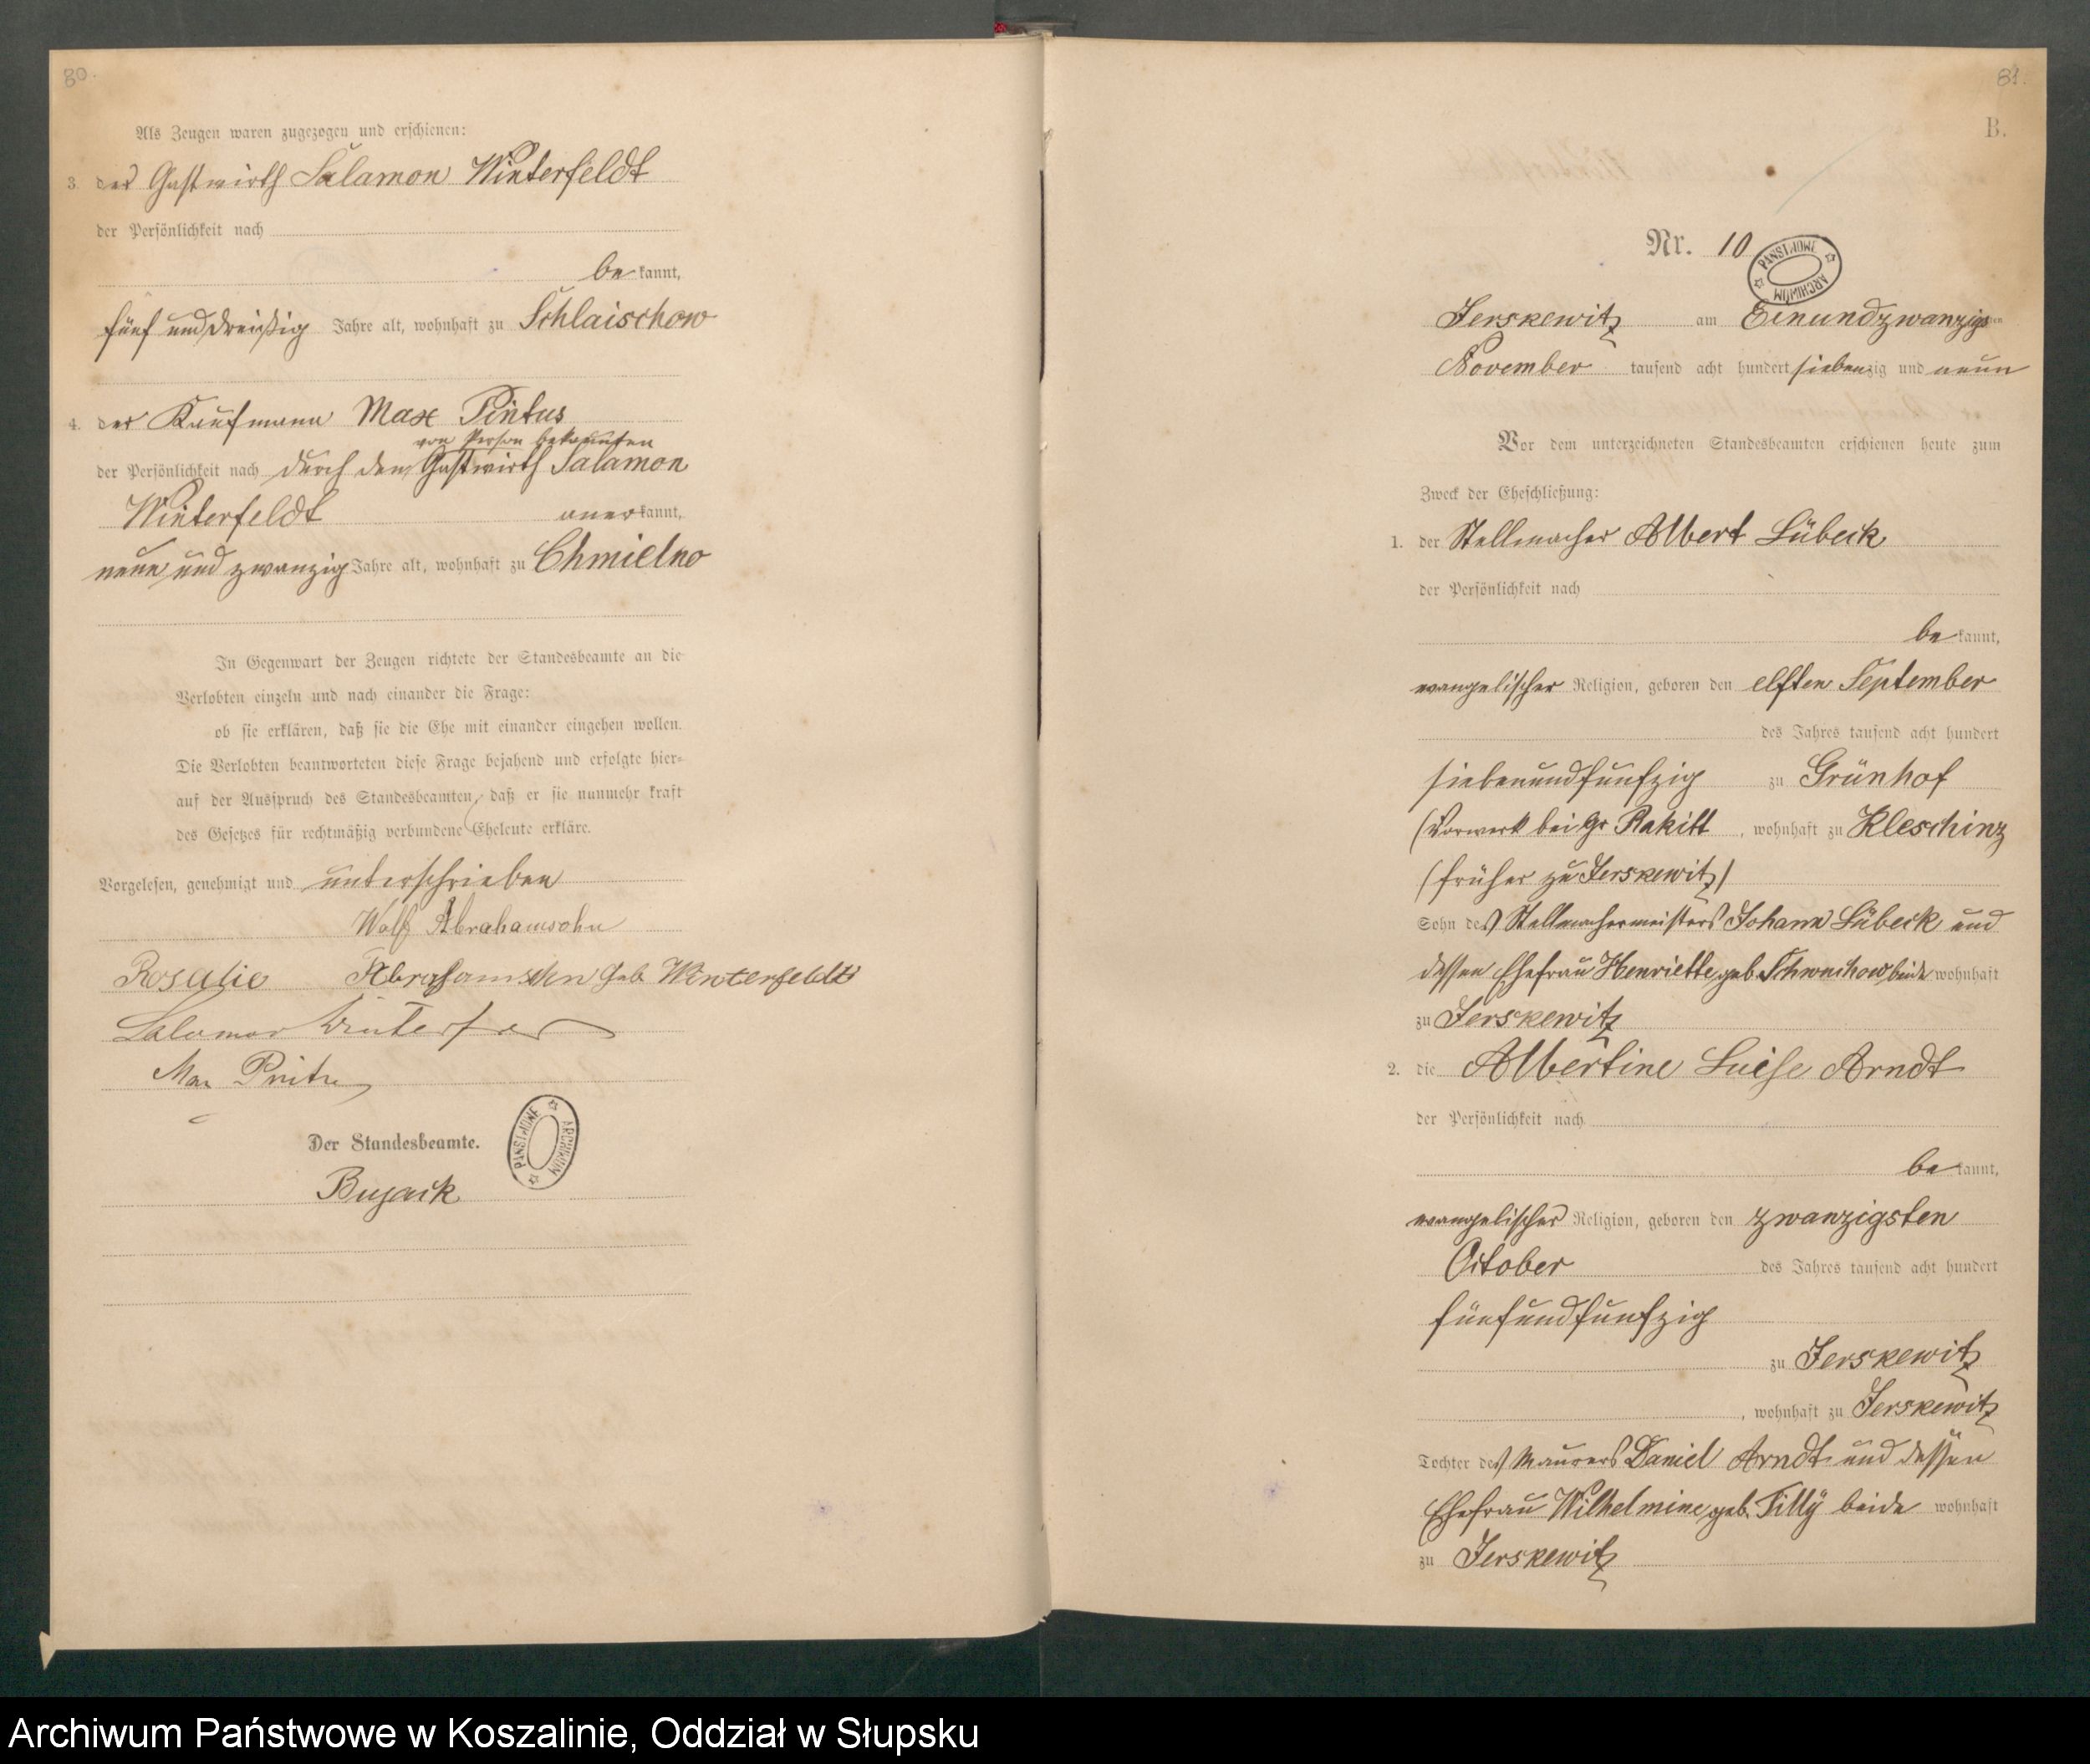 80.
Als Zeugen waren zugezogen und erschienen:
3. der Gastwirth Salamon Winterfeldt
der Persönlichkeit nach
be kannt,
fünf und dreißig Jahre alt, wohnhaft zu Schlaischow
4. der Kaufmann Max Pintus
von Person bekannten
der Persönlichkeit nach durch den Gastwirth Salamon
Winterfeldt aner kannt,
neun und zwanzig Jahre alt, wohnhaft zu Chmielno
In Gegenwart der Zeugen richtete der Standesbeamte an die
Verlobten einzeln und nach einander die Frage:
ob sie erklären, daß sie die Ehe mit einander eingehen wollen.
Die Verlobten beantworteten diese Frage bejahend und erfolgte hier-
auf der Ausspruch des Standesbeamten, daß er sie nunmehr kraft
des Gesetzes für rechtmäßig verbundene Eheleute erkläre.
Vorgelesen, genehmigt und unterschrieben
Wolf Abrahamsohn
Rosalie Abrahamsohn geb Winterfeldt
Salomon Winterfeld
Max Pintus
Der Standesbeamte.
PANSTWOWE ARCHIWUM
Bujack
81.
B.
Nr. 10
PANSTWOWE ARCHIWUM
Jerskewitz am Einundzwanzigsten
November tausend acht hundert siebenzig und neun
Vor dem unterzeichneten Standesbeamten erschienen heute zum
Zweck der Eheschließung:
1. der Stellmacher Albert Lübeck
der Persönlichkeit nach
be kannt,
evangelischer Religion, geboren den elften September
des Jahres tausend acht hundert
siebenundfunfzig zu Grünhof
(Vorwerk bei Gr Rakitt, wohnhaft zu Kleschinz
(früher zu Jerskewitz)
Sohn des Stellmachermeisters Johann Lübeck und
dessen Ehefrau Henriette geb. Schwuchow beide wohnhaft
zu Jerskewitz
2. die Albertine Luise Arndt
der Persönlichkeit nach
be kannt,
evangelischer Religion, geboren den zwanzigsten
October des Jahres tausend acht hundert
fünfundfunfzig
zu Jerskewitz
, wohnhaft zu Jerskewitz
Tochter des Maurers Daniel Arndt und dessen
Ehefrau Wilhelmine geb. Tilly beide wohnhaft
zu Jerskewitz
Archiwum Państwowe w Koszalinie, Oddział w Słupsku